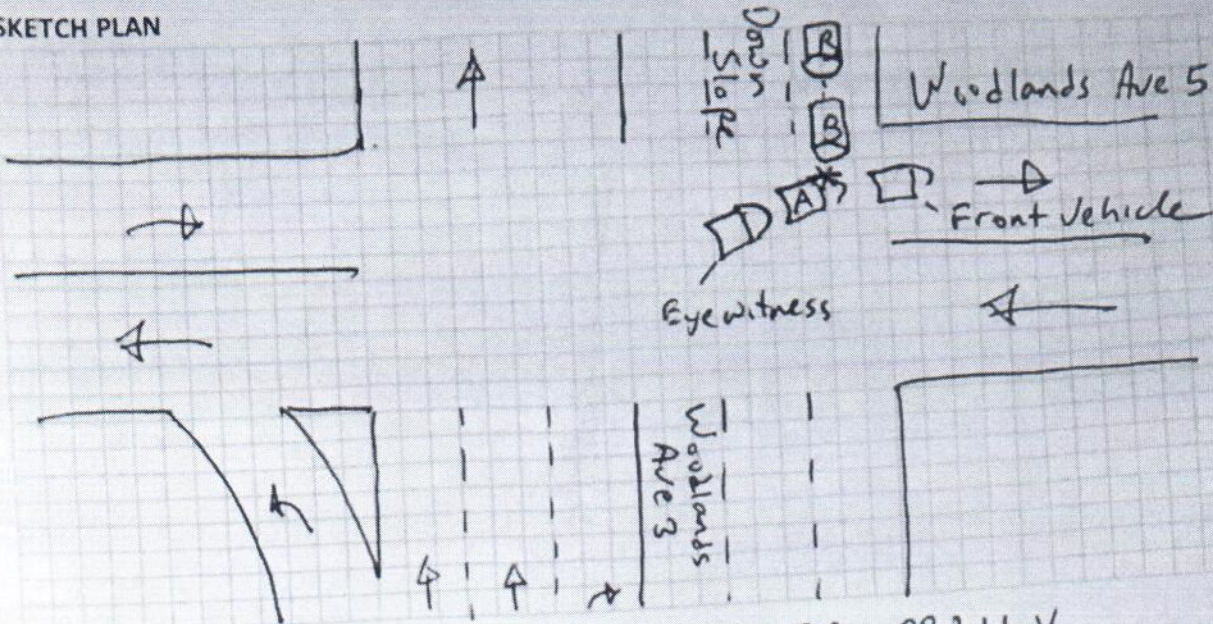 SKETCH PLAN
Down
Slope
B
B
Woodlands Ave 5
A
Front Vehicle
Eyewitness
Woodlands
Ave 3